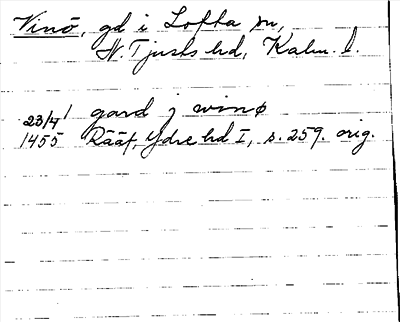 Vinö, gd i Lofta sn,
N. Tjusts hd, Kalm. l.
23/4 gard j winø
1455 Rääf, Ydre hd I, s. 259. orig.